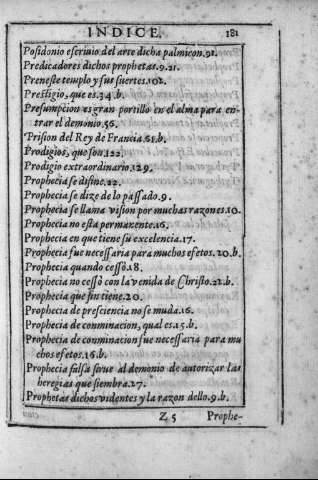 INDICE. 181
Posidonio escriuio del arte dicha palmicon. 91.
Predicadores dichos prophetas. 9. 21.
Preneste templo y sus suertes. 102.
Prestigio, que es. 34. b.
Presumpcion es gran portillo en el alma para en-
trar el demonio. 56.
Prision del Rey de Francia. 61. b.
Prodigios, que son. 122.
Prodigio extraordinario. 129.
Prophecia se difine. 22.
Prophecia se dize de lo passado. 9.
Prophecia se llama vision por muchas razones. 10.
Prophecia no esta permanente. 16.
Prophecia en que tiene su excelencia. 17.
Prophecia fue necessaria para muchos efetos. 20. b.
Prophecia quando cessò. 18.
Prophecia no cessò con la venida de Christo. 21. b.
Prophecia que fin tiene. 20.
Prophecia de presciencia no se muda. 16.
Prophecia de conminacion, qual es. 15. b.
Prophecia de conminacion fue necessaria para mu
chos efetos. 16. b.
Prophecia falsa sirue al demonio de autorizar las
heregias que siembra. 27.
Prophetas dichos videntes y la razon dello. 9. b.
Z 5 Prophe-